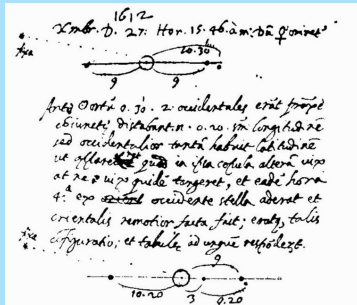 1612
Xmbr. D. 27. Hor. 15. 46. à m.
fixa
10.30
9 9
0. 30. 2. occidentales erāt
distabant. n. 0. 20. longitudinē
sed occidentalior tantā habuit latitudinē
ut in ipsa altera vix
at ne vix quidē tangeret, et eadē hora
4.ª ex occidente stella aderat et
orientalis remotior facta fuit; eratq. talis
configuratio; et tabulę ad unguē respōdent.
fixa
9
10.20 3 0.20